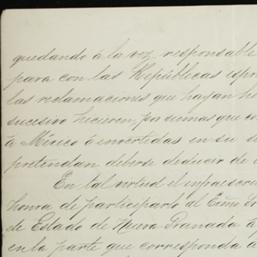 quedando á la vez responsable
para con las Repúblicas
las reclamaciones que hayan
sucesivo hicieren, por sumas que
á México ó invertidas en su
pretendan deberse deducir de
En tal virtud el infraescri
honra de participarlo al Exmo
de Estado de Nueva Granada
en la parte que corresponda á